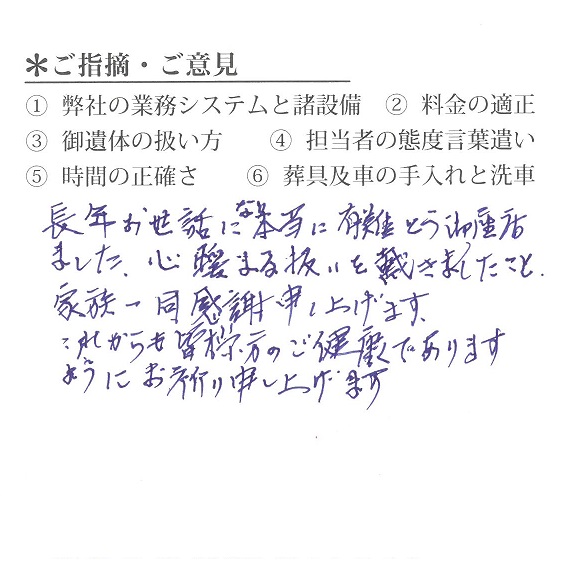 ＊ご指摘・ご意見
① 弊社の業務システムと諸設備 ② 料金の適正
③ 御遺体の扱い方 ④ 担当者の態度言葉遣い
⑤ 時間の正確さ ⑥ 葬具及車の手入れと洗車
長年お世話になり本当に有難とう御座居
ました、心暖まる扱いを戴きましたこと、
家族一同感謝申し上げます、
これからも皆様方のご健康であります
ようにお祈り申し上げます